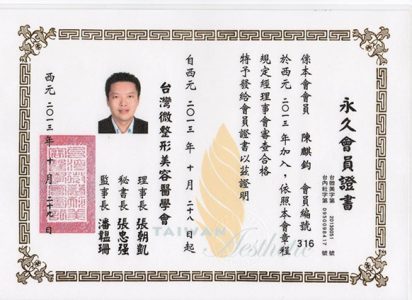 永久會員證書
台內社字第0950098417號
係本會會員 陳麒鈞 會員編號 316
於西元二○一三年加入，依照本會章程
規定經理事會審查合格
特予發給會員證書以茲證明
自西元 二○一三年 十月 二十八 日起
台灣微整形美容醫學會
理事長 張朝凱
秘書長 張忠強
監事長 潘韞珊
西元 二○一三年 十月 二十九 日
TAIWAN
Aesthetic